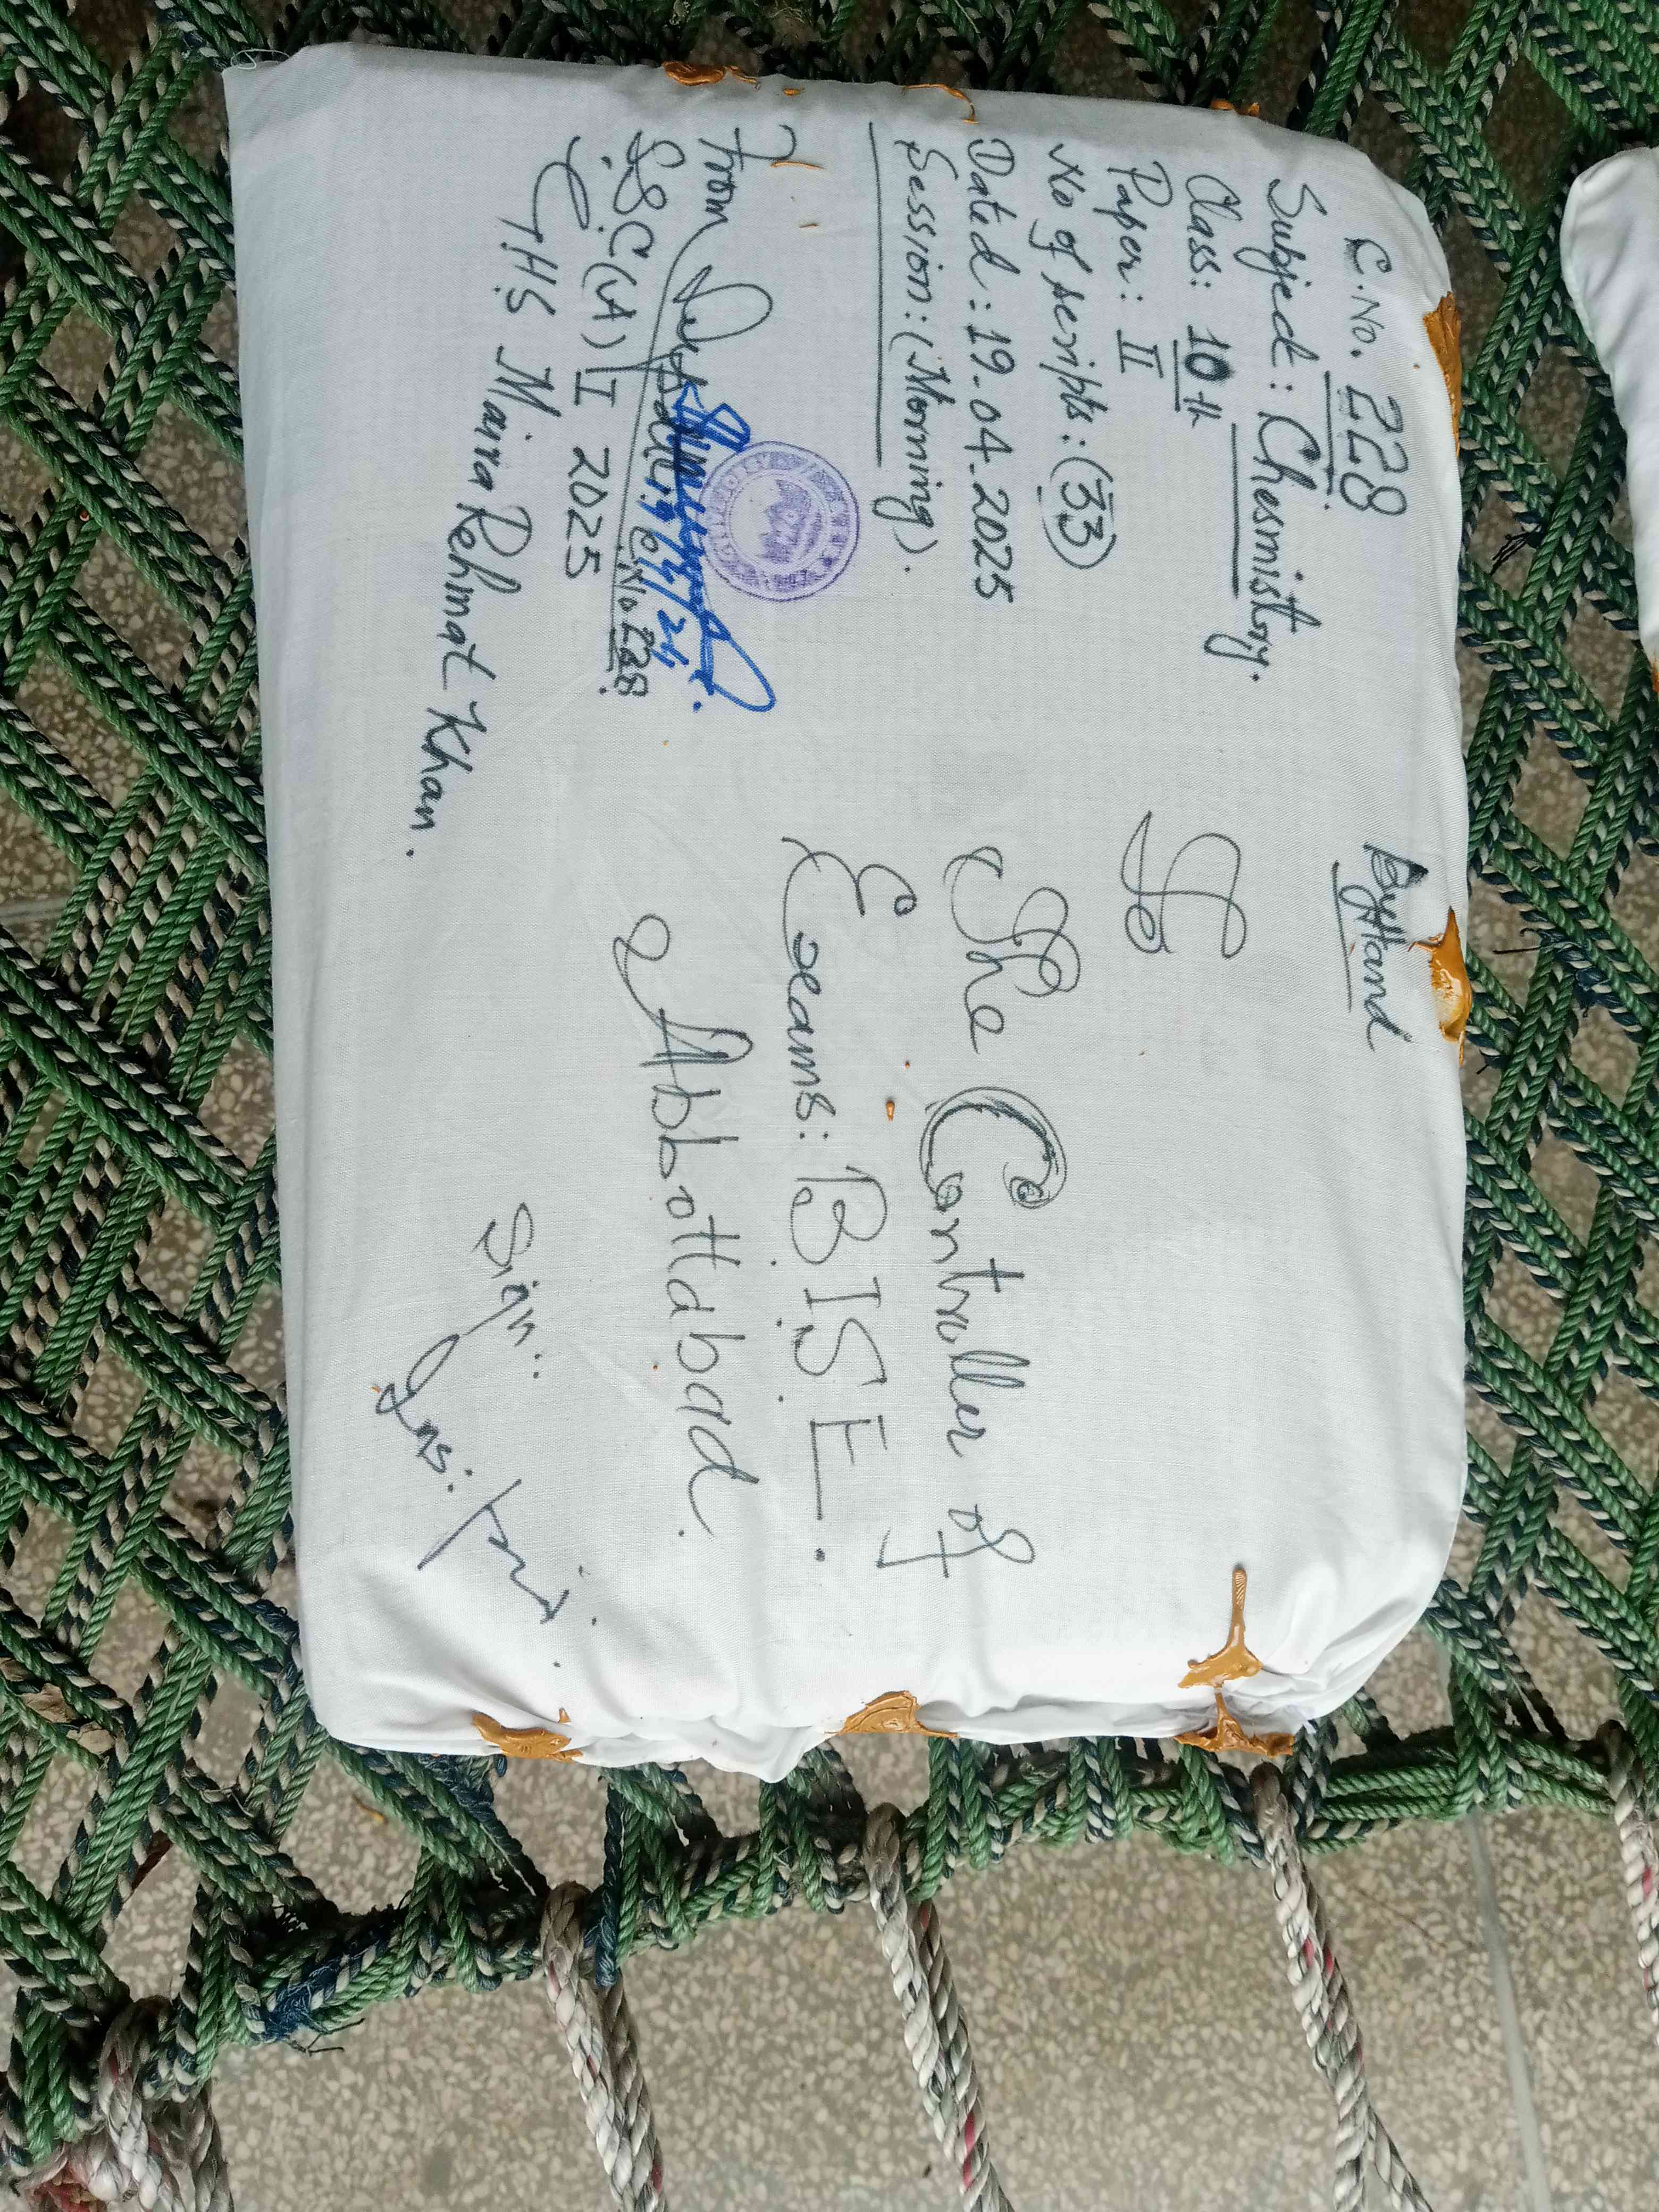 C.No. 228
Subject: Chesmistry.
Class: 10th
Paper: II
No of scripts: (33)
Dated: 19-04-2025
Session: (Morning).
By Hand
To
The Controller of
Exams: B.I.S.E.
Abbottabad.
From
C.No. 228.
SSC(A) I 2025
GHS Maira Rehmat Khan.
Sign: